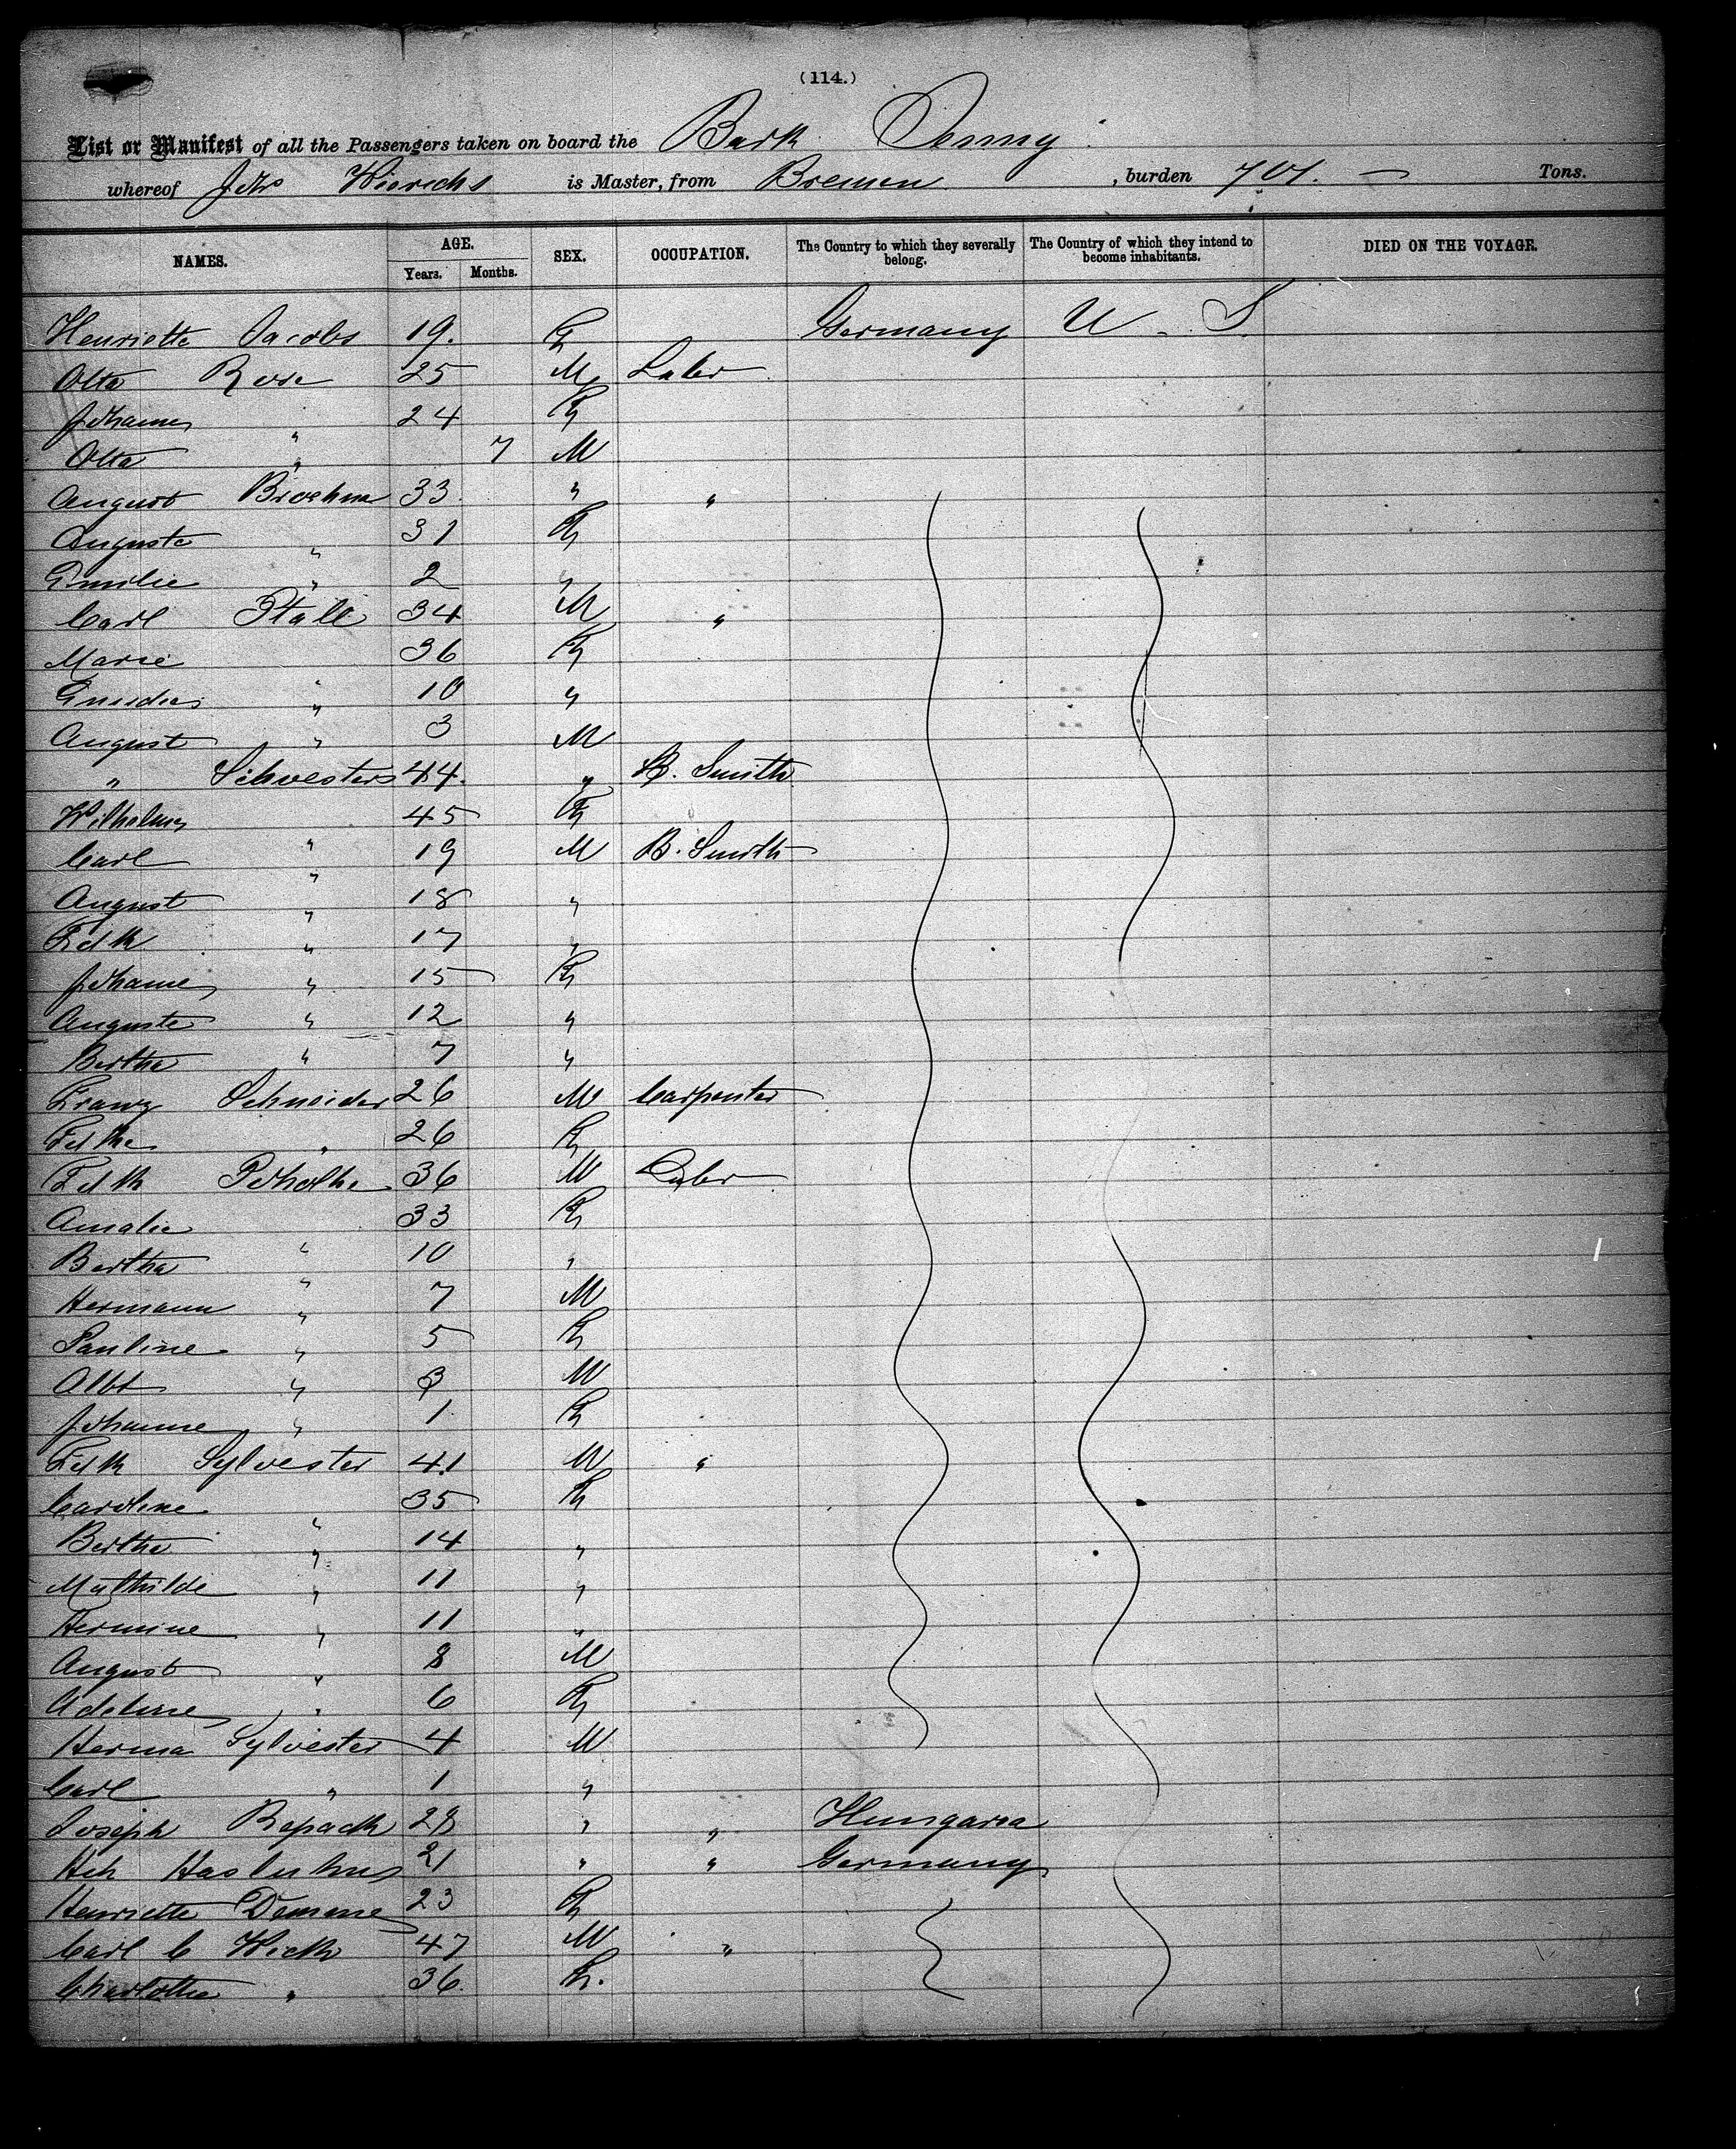 (114.)
List or Manifest of all the Passengers taken on board the Bark
whereof Joh Wierichs is Master, from Bremen, burden 701. — Tons.
NAMES. AGE. Years. Months. SEX. OCCUPATION. The Country to which they severally belong. The Country of which they intend to become inhabitants. DIED ON THE VOYAGE.
Henriette Jacobs 19. F Germany U. S
Otto Rose 25 M Labor
Johanne " 24 F
Otto " 7 M
August 33 " "
Auguste " 31 F
Emilie " 2 "
Carl 34 M "
Marie " 36 F
" 10 "
August " 3 M
" Schvesters 44. " B. Smith
45 F
Carl " 19 M B. Smith
August " 18 "
Fdk " 17 "
Johanne " 15 F
Auguste " 12 "
Bertha " 7 "
Franz Schneider 26 M Carpenter
Fdke " 26 F
Fdk 36 M Labor
Amalie " 33 F
Bertha " 10 "
Hermann " 7 M
Pauline " 5 F
Albt " 3 M
Johanne " 1 F
Fdk Sylvester 41 M "
Caroline " 35 F
Bertha " 14 "
Mathilde " 11 "
Hermine " 11 "
August " 8 M
Adeline " 6 F
Herma Sylvester 4 M
Carl " 1 "
Joseph Repack 28 " " Hungaria
Hch 21 " " Germany
Henriette 23 F
Carl C Wick 47 M "
Charlotte " 36. F.